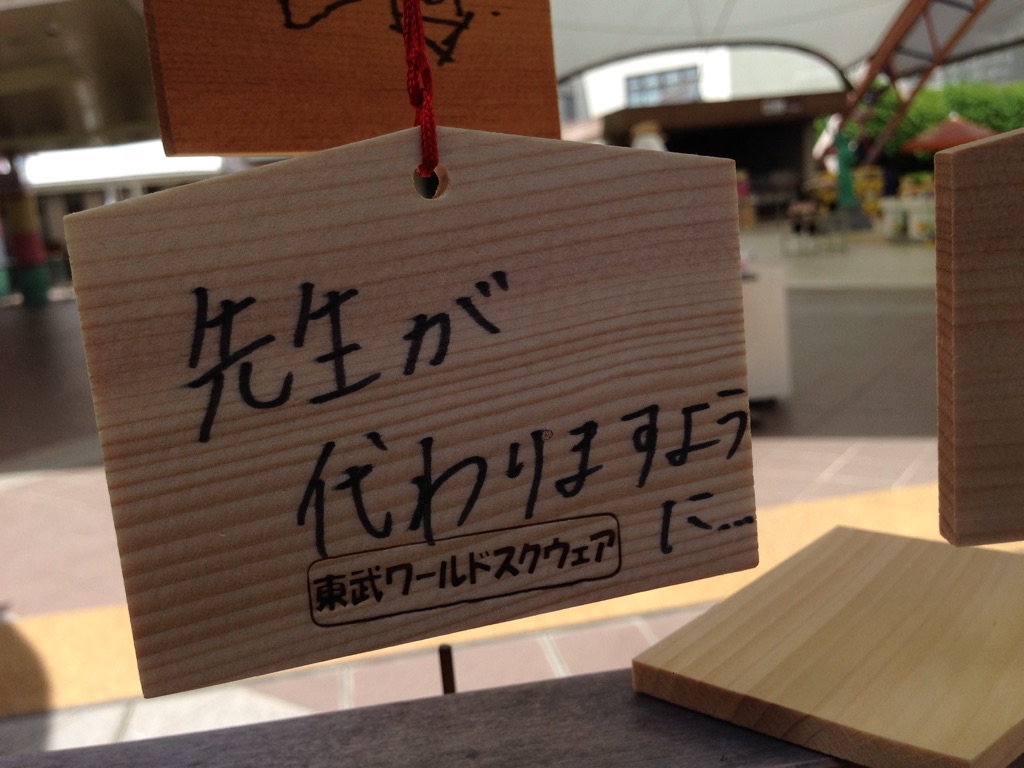 先生が
代わりますよう
に…
東武ワールドスクウェア